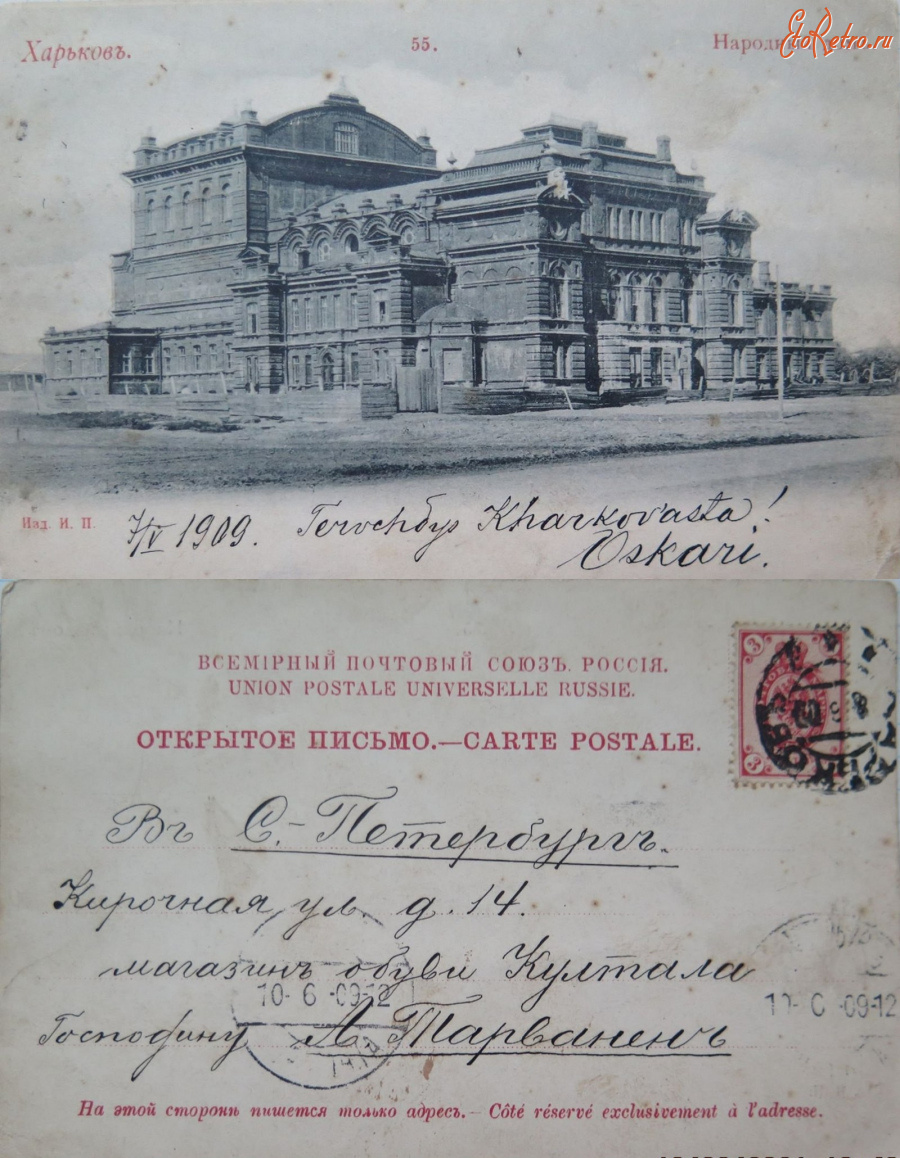 Харьковъ.
55.
Народн
EtoRetro.ru
Изд. И. П.
7/V 1909. Tervehdys Kharkov'asta!
Oskari.
ВСЕМІРНЫЙ ПОЧТОВЫЙ СОЮЗЪ. РОССІЯ.
UNION POSTALE UNIVERSELLE RUSSIE.
ОТКРЫТОЕ ПИСЬМО.—CARTE POSTALE.
3
3 3
Въ С.-Петербургъ.
Кирочная ул. д. 14.
магазинъ обуви Култала
10-6-09-12
Господину А. Тарваненъ
На этой сторонѣ пишется только адресъ.- Côté réservé exclusivement à l'adresse.